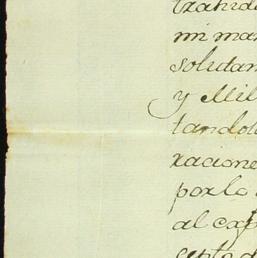 trahid
mi man
solutam
y Mil
tandol
racione
por lo
al exp
cepto d